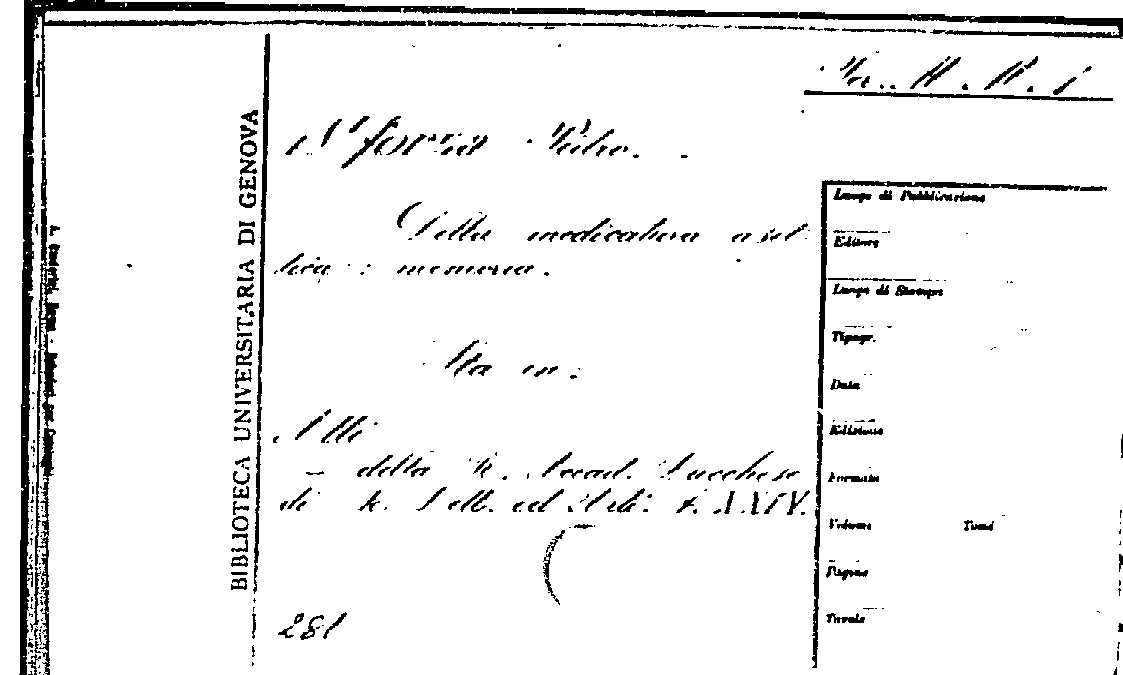 BIBLIOTECA UNIVERSITARIA DI GENOVA
Sforza Pietro.
Della medicatura aset-
tica: memoria.
Sta in:
Atti
- della R. Accad. Lucchese
di Sc. Lett. ed Arti. t. XXIV.
281
Luogo di Pubblicazione
Editore
Luogo di Stampa
Tipogr.
Data
Edizione
Formato
Volume Tomi
Pagine
Tavole